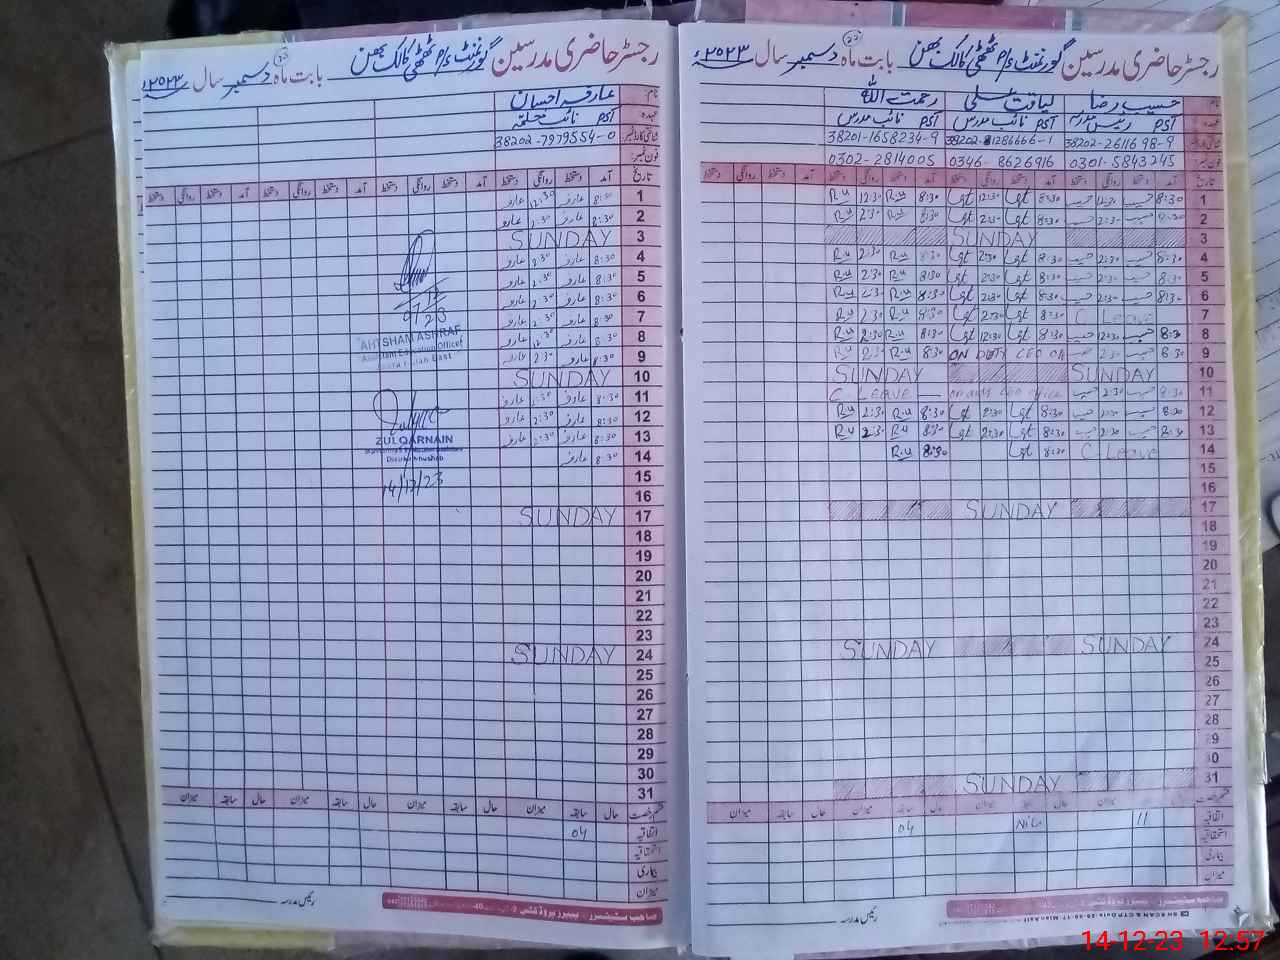 رجسٹر حاضری مدرسین گورنمنٹ p/s ٹھٹھی کالک بھن بابت ماہ دسمبر سال ۲۰۲۳ء
نام: حسیب رضا لیاقت علی رحمت اللہ
عہدہ: PST رئیس مدرسہ PST نائب مدرس PST نائب مدرس
38202-2611698-9 38202-81286666-1 38201-1658234-9
فون نمبر: 0301-5843245 0346-8626916 0302-2814005
تاریخ آمد دستخط روانگی دستخط آمد دستخط روانگی دستخط آمد دستخط روانگی دستخط آمد دستخط روانگی دستخط
1 8:30 حسیب 12:30 حسیب 8:30 Lgt 12:30 Lgt 8:30 R.u 12:30 R.u
2 8:30 حسیب 2:30 حسیب 8:30 Lgt 2:30 Lgt 8:30 R.u 2:30 R.u
3 SUNDAY
4 8:30 حسیب 2:30 حسیب 8:30 Lgt 2:30 Lgt 8:30 R.u 2:30 R.u
5 8:30 حسیب 2:30 حسیب 8:30 Lgt 2:30 Lgt 8:30 R.u 2:30 R.u
6 8:30 حسیب 2:30 حسیب 8:30 Lgt 2:30 Lgt 8:30 R.u 2:30 R.u
7 C Leave 8:30 Lgt 2:30 Lgt 8:30 R.u 2:30 R.u
8 8:30 حسیب 12:30 حسیب 8:30 Lgt 12:30 Lgt 8:30 R.u 2:30 R.u
9 8:30 حسیب 2:30 حسیب ON DUTY CEO 8:30 R.u 2:30 R.u
10 SUNDAY SUNDAY
11 8:30 حسیب 2:30 حسیب on duty CEO office C LEAVE
12 8:30 حسیب 2:30 حسیب 8:30 Lgt 2:30 Lgt 8:30 R.u 2:30 R.u
13 8:30 حسیب 2:30 حسیب 8:30 Lgt 2:30 Lgt 8:30 R.u 2:30 R.u
14 C Leave 8:30 Lgt 8:30 R.u
15
16
17 SUNDAY
18
19
20
21
22
23
24 SUNDAY SUNDAY
25
26
27
28
29
30
31 SUNDAY
قسم رخصت میزان حال سابقہ میزان
اتفاقیہ 11 Nil 04
استحقاقیہ
بیماری
میزان
رئیس مدرسہ
رجسٹر حاضری مدرسین گورنمنٹ p/s ٹھٹھی کالک بھن بابت ماہ دسمبر سال ۲۰۲۳ء
عارفہ احسان
PST نائب معلمہ
38202-7979554-0
آمد دستخط روانگی دستخط آمد دستخط روانگی دستخط آمد دستخط روانگی دستخط آمد دستخط روانگی دستخط
1 8:30 عارفہ 12:30 عارفہ
2 8:30 عارفہ 2:30 عارفہ
3 SUNDAY
4 8:30 عارفہ 2:30 عارفہ
5 8:30 عارفہ 2:30 عارفہ
6 8:30 عارفہ 2:30 عارفہ
7 8:30 عارفہ 2:30 عارفہ
8 8:30 عارفہ 12:30 عارفہ
9 8:30 عارفہ 2:30 عارفہ
10 SUNDAY
11 8:30 عارفہ 2:30 عارفہ
12 8:30 عارفہ 2:30 عارفہ
13 8:30 عارفہ 2:30 عارفہ
14 8:30 عارفہ
15
16
17 SUNDAY
18
19
20
21
22
23
24 SUNDAY
25
26
27
28
29
30
31
AHTSHAM ASHRAF
Assistant Education Officer
ZULQARNAIN
14/12/23
قسم رخصت حال سابقہ میزان حال سابقہ میزان حال سابقہ میزان حال سابقہ میزان
اتفاقیہ 04
استحقاقیہ
بیماری
میزان
رئیس مدرسہ
صاحب سٹیشنرز
14-12-23 12:57